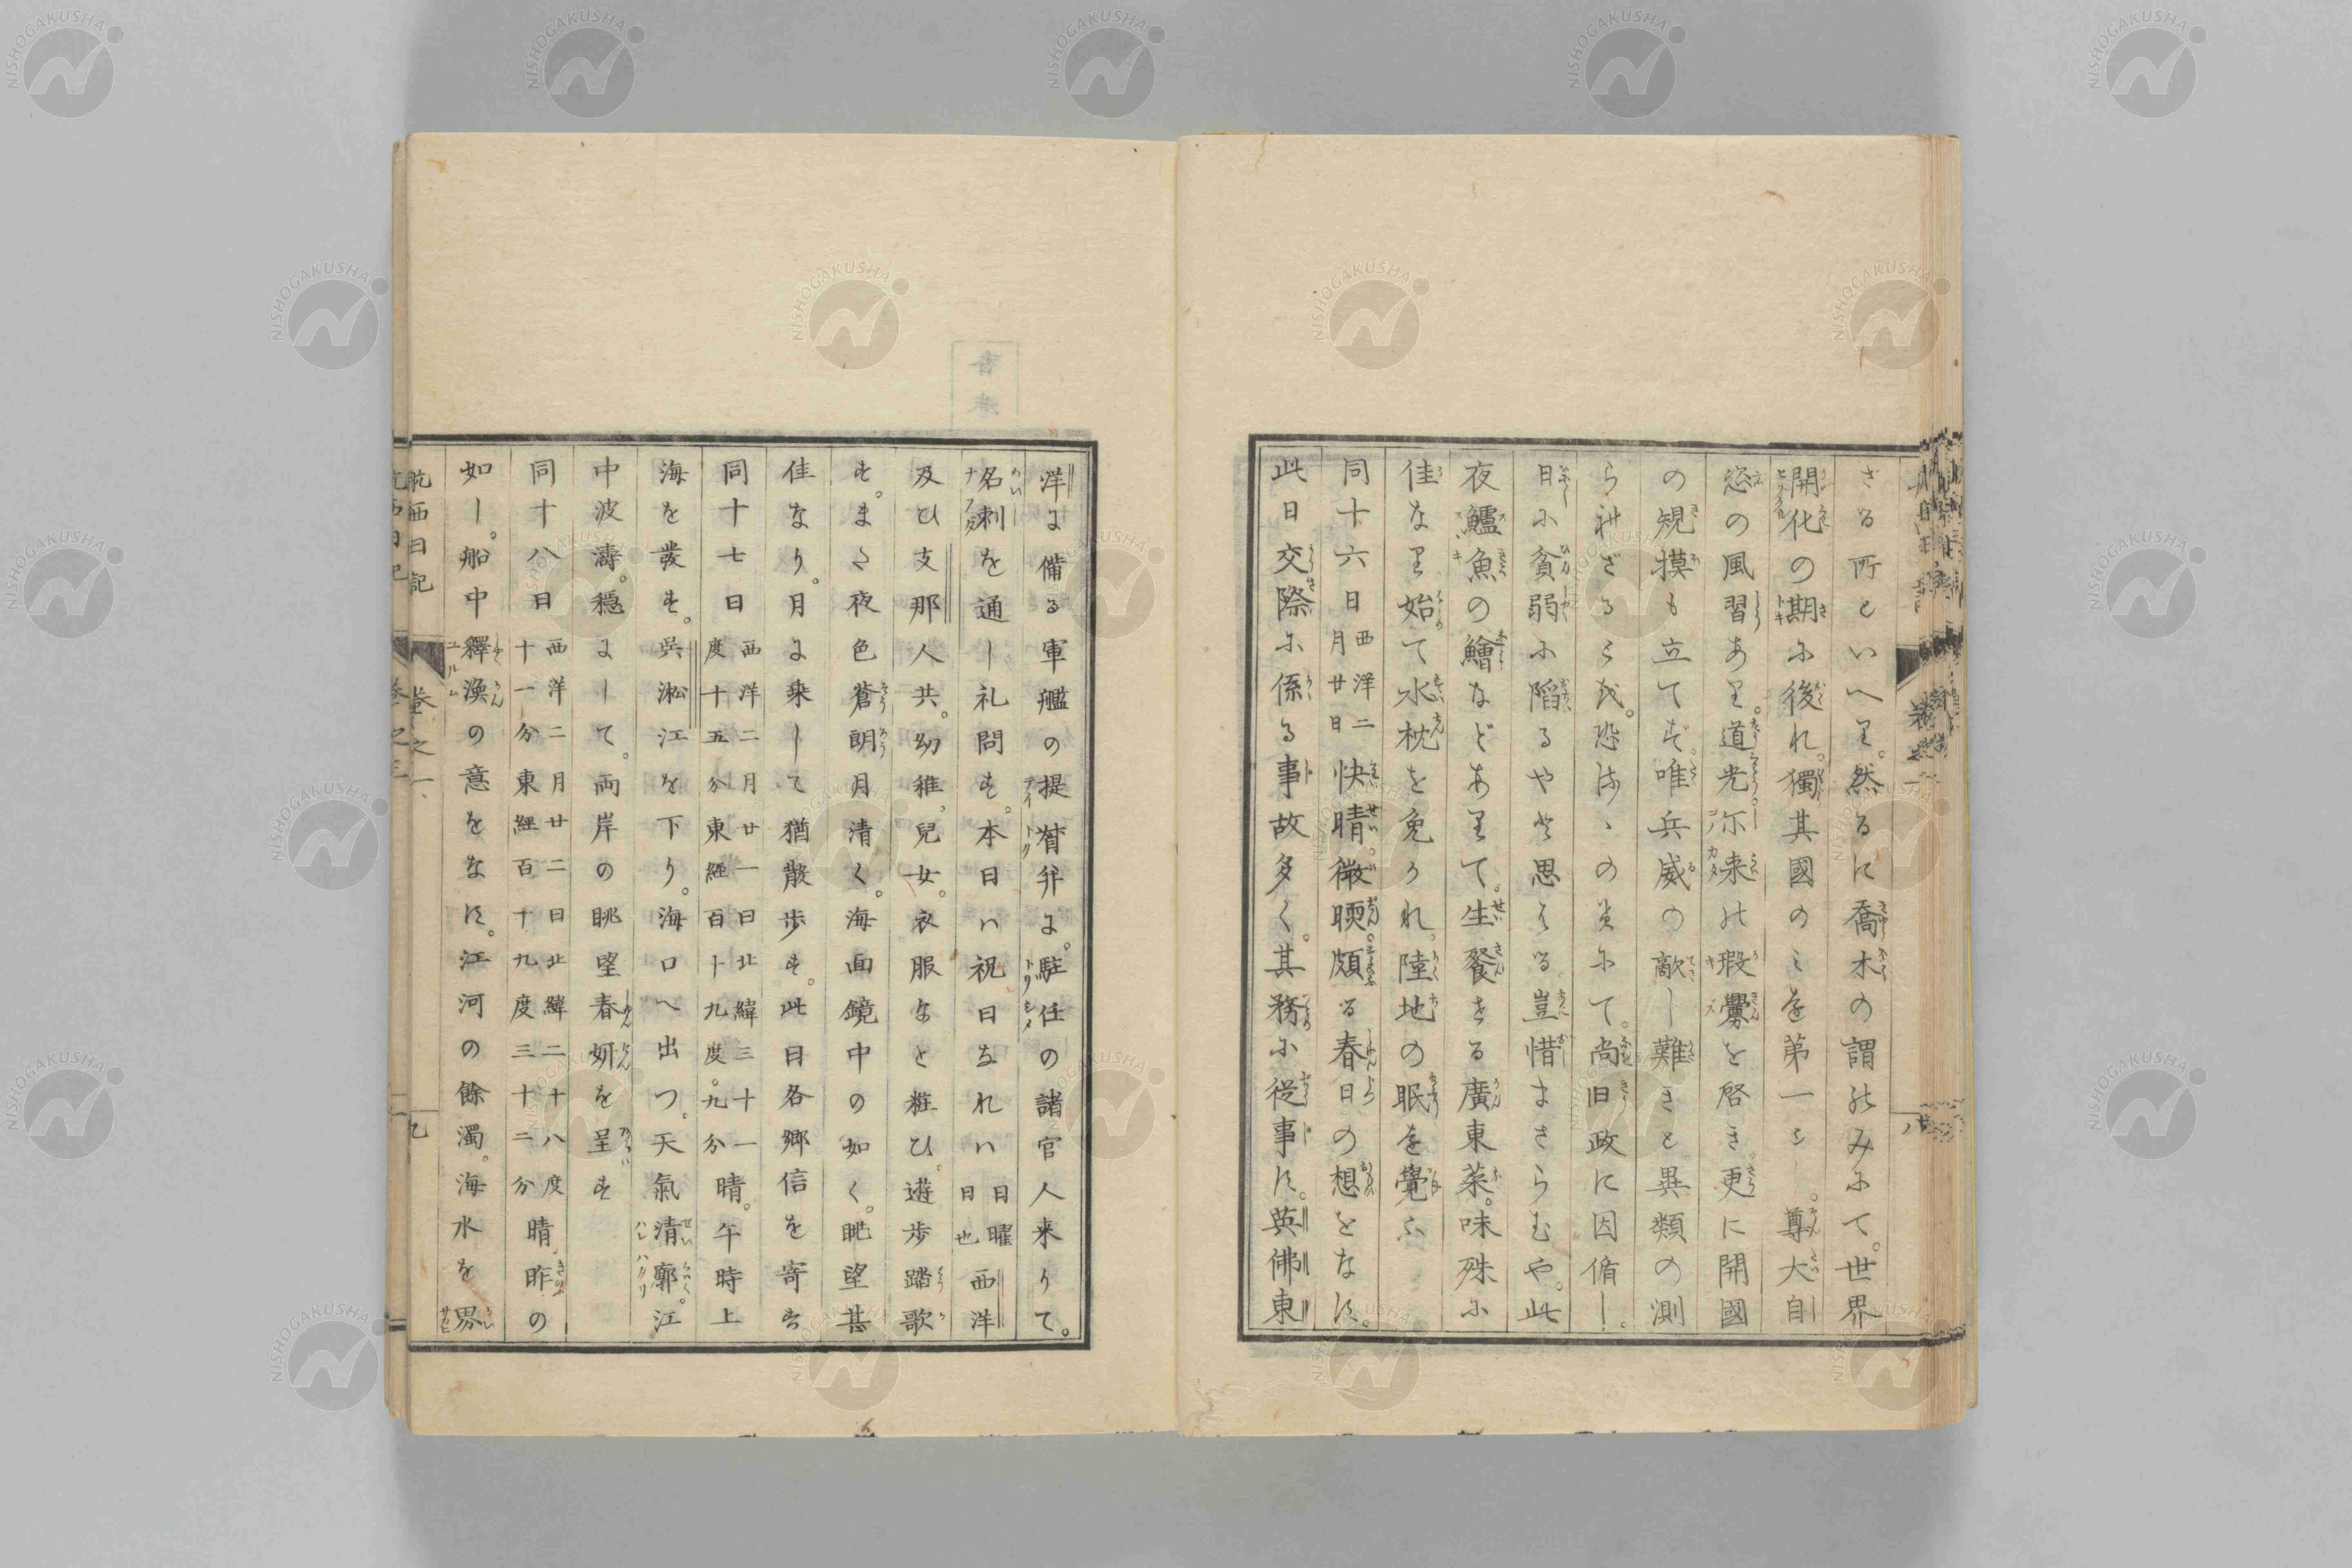 さる所といへり。然るに喬木の謂のみにて。世界
開化の期に後れ。獨其國のミを第一とし。尊大自
恣の風習あり。道光尓来の瑕釁を啓き。更に開國
の規摸も立てず。唯兵威の敵し難きと異類の測
日に貧弱に陷るや と思はる。豈惜まさらむや。此
夜鱸魚の鱠などありて。生餐せる廣東菜。味殊に
佳なり始て水枕を免かれ。陸地の眠を覺ふ
同十六日西洋二月廿日快晴。微暖。頗る春日の想をなす。
此日交際に係る事故多く。其務に従事す。英佛東
洋に備る軍艦の提督弁に。駐任の諸官人来りて。
名刺を通し礼問す。本日ハ祝日なれハ日曜日也西洋
及ひ支那人共。幼稚兒女。衣服なと粧ひ。遊歩踏歌
す。また夜色蒼朗月清く。海面鏡中の如く。眺望甚
佳なり。月に乗して猶散歩す。此日各郷信を寄す
同十七日西洋二月廿一日北緯三十一度十五分東經百十九度。九分晴。午時上
海を發す。呉淞江を下り。海口へ出つ。天氣清廓。江
中波濤。穩にして。両岸の眺望春妍を呈す
同十八日西洋二月廿二日北緯二十八度十一分東經百十九度三十二分晴。昨の
如し。船中釋漁の意をなす。江河の餘濁。海水を界
航西日記
巻之一
九